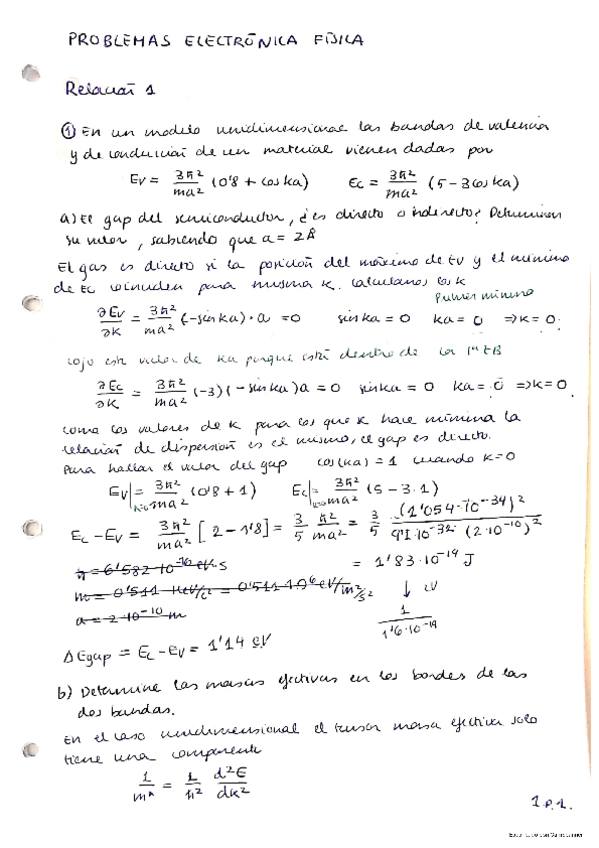 PROBLEMAS ELECTRÓNICA FÍSICA
Relación 1
① En un modelo unidimensional las bandas de valencia
y de conducción de un material vienen dadas por
Ev = 3ħ²/ma² (0'8 + cos ka)    Ec = 3ħ²/ma² (5 - 3 cos ka)
a) El gap del semiconductor, ¿es directo o indirecto? Determinar
su valor, sabiendo que a = 2Å
El gas es directo si la posición del máximo de Ev y el mínimo
de Ec coinciden para misma k. Calculamos los k
Primer mínimo
∂Ev/∂k = 3ħ²/ma² (-sin ka)·a = 0    sin ka = 0    ka = 0 ⇒ k = 0
cojo este valor de ka porque está dentro de la 1ª ZB
∂Ec/∂k = 3ħ²/ma² (-3)(-sin ka)a = 0    sin ka = 0    ka = 0 ⇒ k = 0
como los valores de k para los que se hace mínima la
relación de dispersión es el mismo, el gap es directo.
Para hallar el valor del gap    cos(ka) = 1 cuando k=0
Ev|k=0 = 3ħ²/ma² (0'8 + 1)    Ec|k=0 = 3ħ²/ma² (5 - 3·1)
Ec - Ev = 3ħ²/ma² [2 - 1'8] = 3/5 ħ²/ma² = 3/5 (1'054·10⁻³⁴)²/9'1·10⁻³² (2·10⁻¹⁰)²
ħ = 6'582·10⁻¹⁶ eV s    = 1'83·10⁻¹⁹ J
m = 0'511 MeV/c² = 0'511·10⁶ eV/m²/s²    ↓ eV
a = 2·10⁻¹⁰ m    1/1'6·10⁻¹⁹
ΔEgap = Ec - Ev = 1'14 eV
b) Determine las masas efectivas en los bordes de las
dos bandas.
En el caso unidimensional el tensor masa efectiva solo
tiene una componente
1/m* = 1/ħ² d²E/dk²
1.P.1.